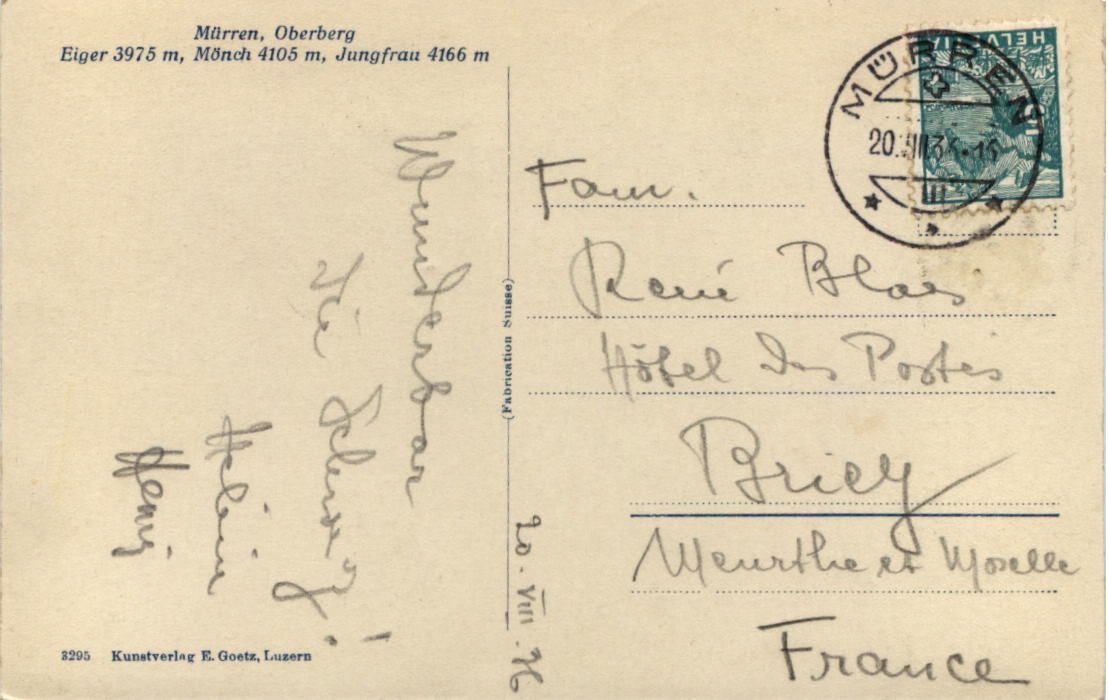 Mürren, Oberberg
Eiger 3975 m, Mönch 4105 m, Jungfrau 4166 m
HELVETIA
MÜRREN
20.VIII.36
III
Wunderbar
die Schweiz!
Hélène
Henri
(Fabrication Suisse)
20.VIII.36
Fam.
René Blaes
Hôtel des Postes
Briey
Meurthe et Moselle
France
3295 Kunstverlag E. Goetz, Luzern